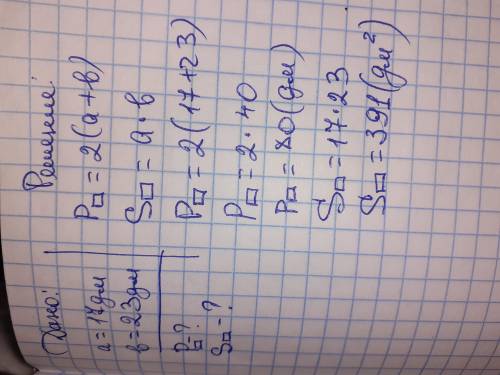 Дано:
a = 17 дм
в = 23 дм
P▭ = ?
S▭ - ?
Решение:
P▭ = 2(a+в)
S▭ = a · в
P▭ = 2(17+23)
P▭ = 2 · 40
P▭ = 80(дм)
S▭ = 17 · 23
S▭ = 391(дм²)